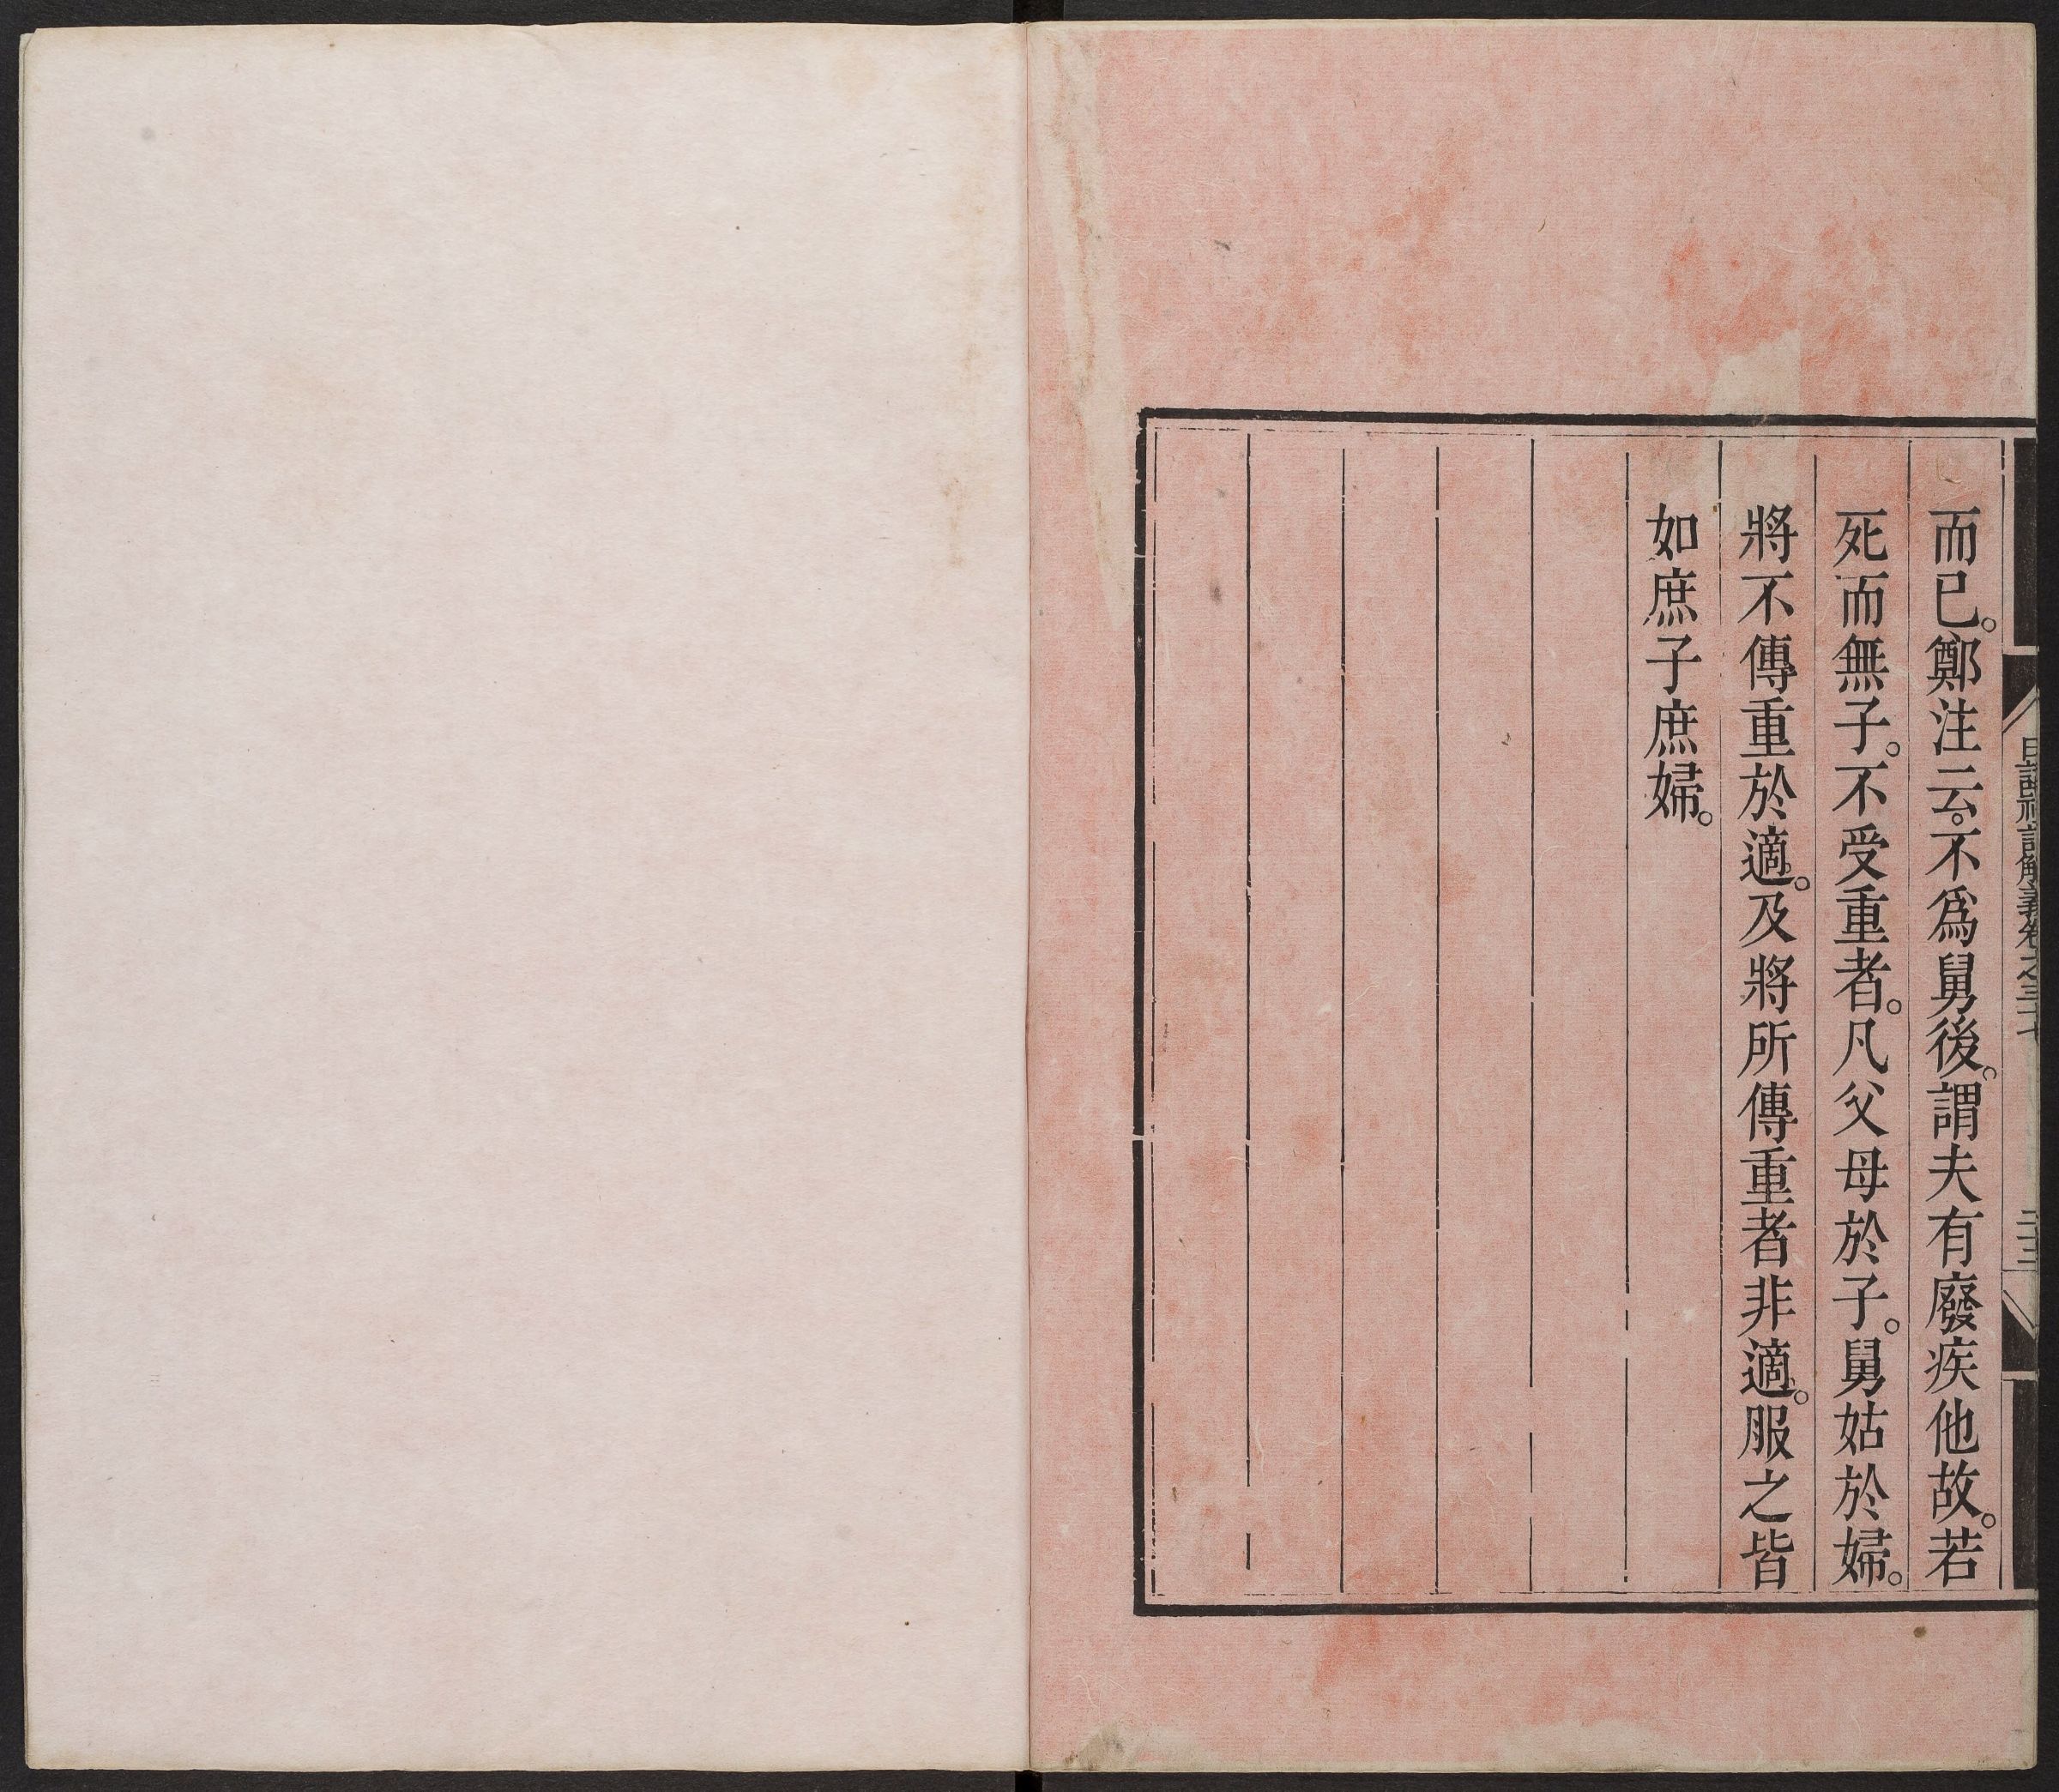 而已。鄭注云。不爲舅後。謂夫有廢疾他故。若
死而無子。不受重者。凡父母於子。舅姑於婦。
將不傳重於適。及將所傳重者非適。服之皆
如庶子庶婦。
日講禮記解義卷之三十七
二十三